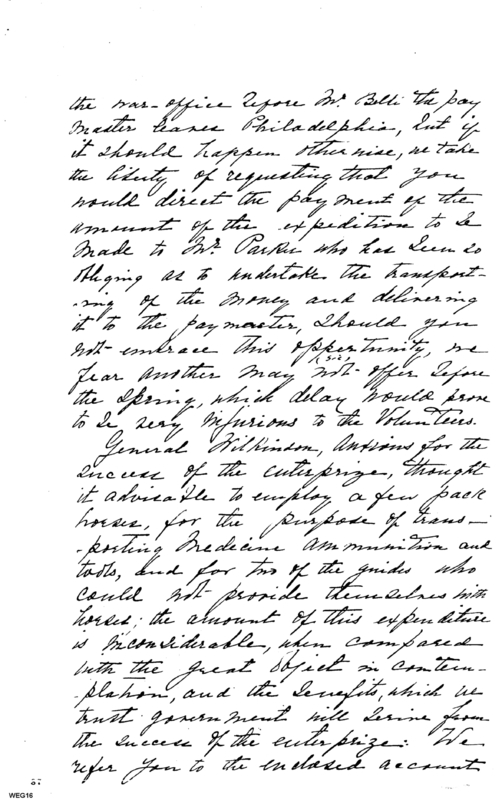 the war-office before Mr. Belli the pay
Master leaves Philadelphia, but if
it should happen otherwise, we take
the liberty of requesting that you
would direct the payment of the
amount of the expedition to be
made to Mr. Parker who has been so
obliging as to undertake the transport-
-ing of the money and delivering
it to the paymaster, should you
not embrace this oppertunity, we
(sic)
fear another may not offer before
the Spring, which delay would prove
to be very injurious to the Volunteers.
General Wilkinson, anxious for the
success of the enterprize, thought
it advisable to employ a few pack
horses, for the purpose of trans-
-porting Medicine ammunition and
tools, and for two of the guides who
could not provide themselves with
horses; the amount of this expenditure
is inconsiderable, when compared
with the great object in contem-
-plation, and the benefits, which we
trust government will derive from
the success of the enterprize: We
refer you to the enclosed account
WEG16